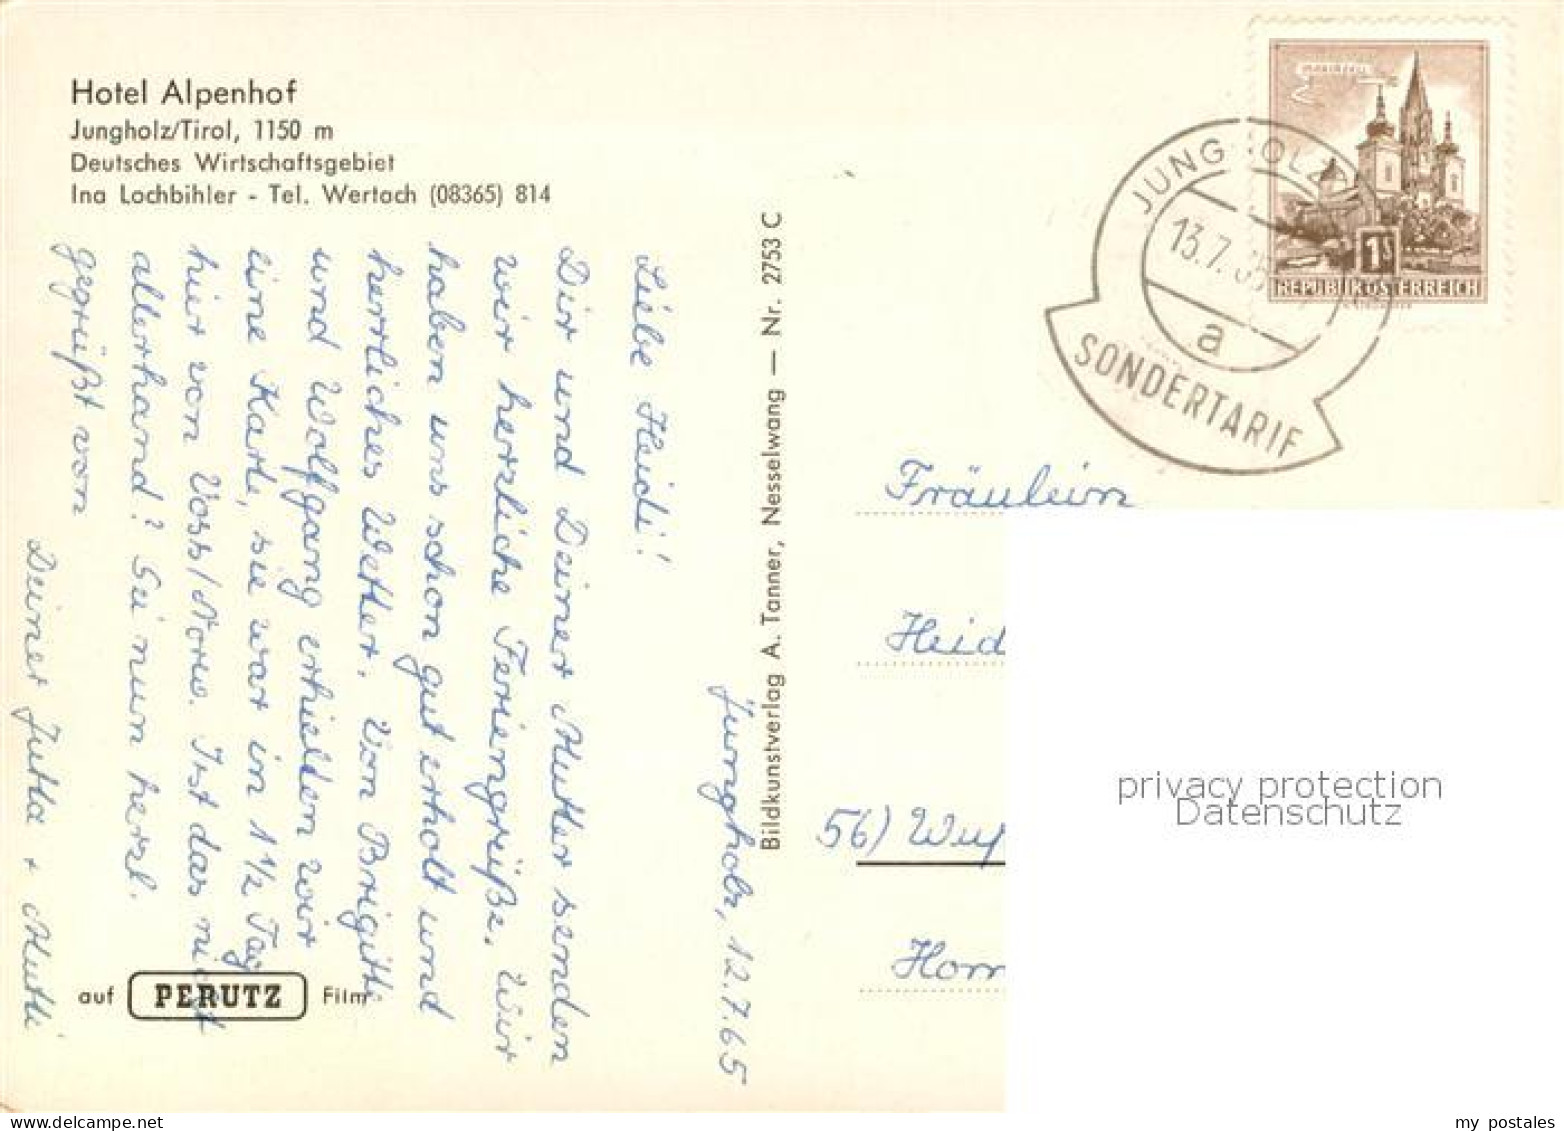 Hotel Alpenhof
Jungholz/Tirol, 1150 m
Deutsches Wirtschaftsgebiet
Ina Lochbihler - Tel. Wertach (08365) 814
Jungholz, 12.7.65
Liebe Heidi!
Dir und Deiner Mutter senden
wir herzliche Feriengrüße. Wir
haben uns schon gut erholt und
herrliches Wetter. Von Brigitte
und Wolfgang erhielten wir
eine Karte, sie war in 1 1/2 Tag
hier von Voss/Norw. Ist das nicht
allerhand? Sei nun herzl.
gegrüßt von
Deiner Jutta + Mutti
auf PERUTZ Film
Bildkunstverlag A. Tanner, Nesselwang — Nr. 2753 C
MARIAZELL
1S
REPUBLIK ÖSTERREICH
JUNGHOLZ
13.7.65
a
SONDERTARIF
Fräulein
Heid
56) Wup
Hom
privacy protection
Datenschutz
my postales